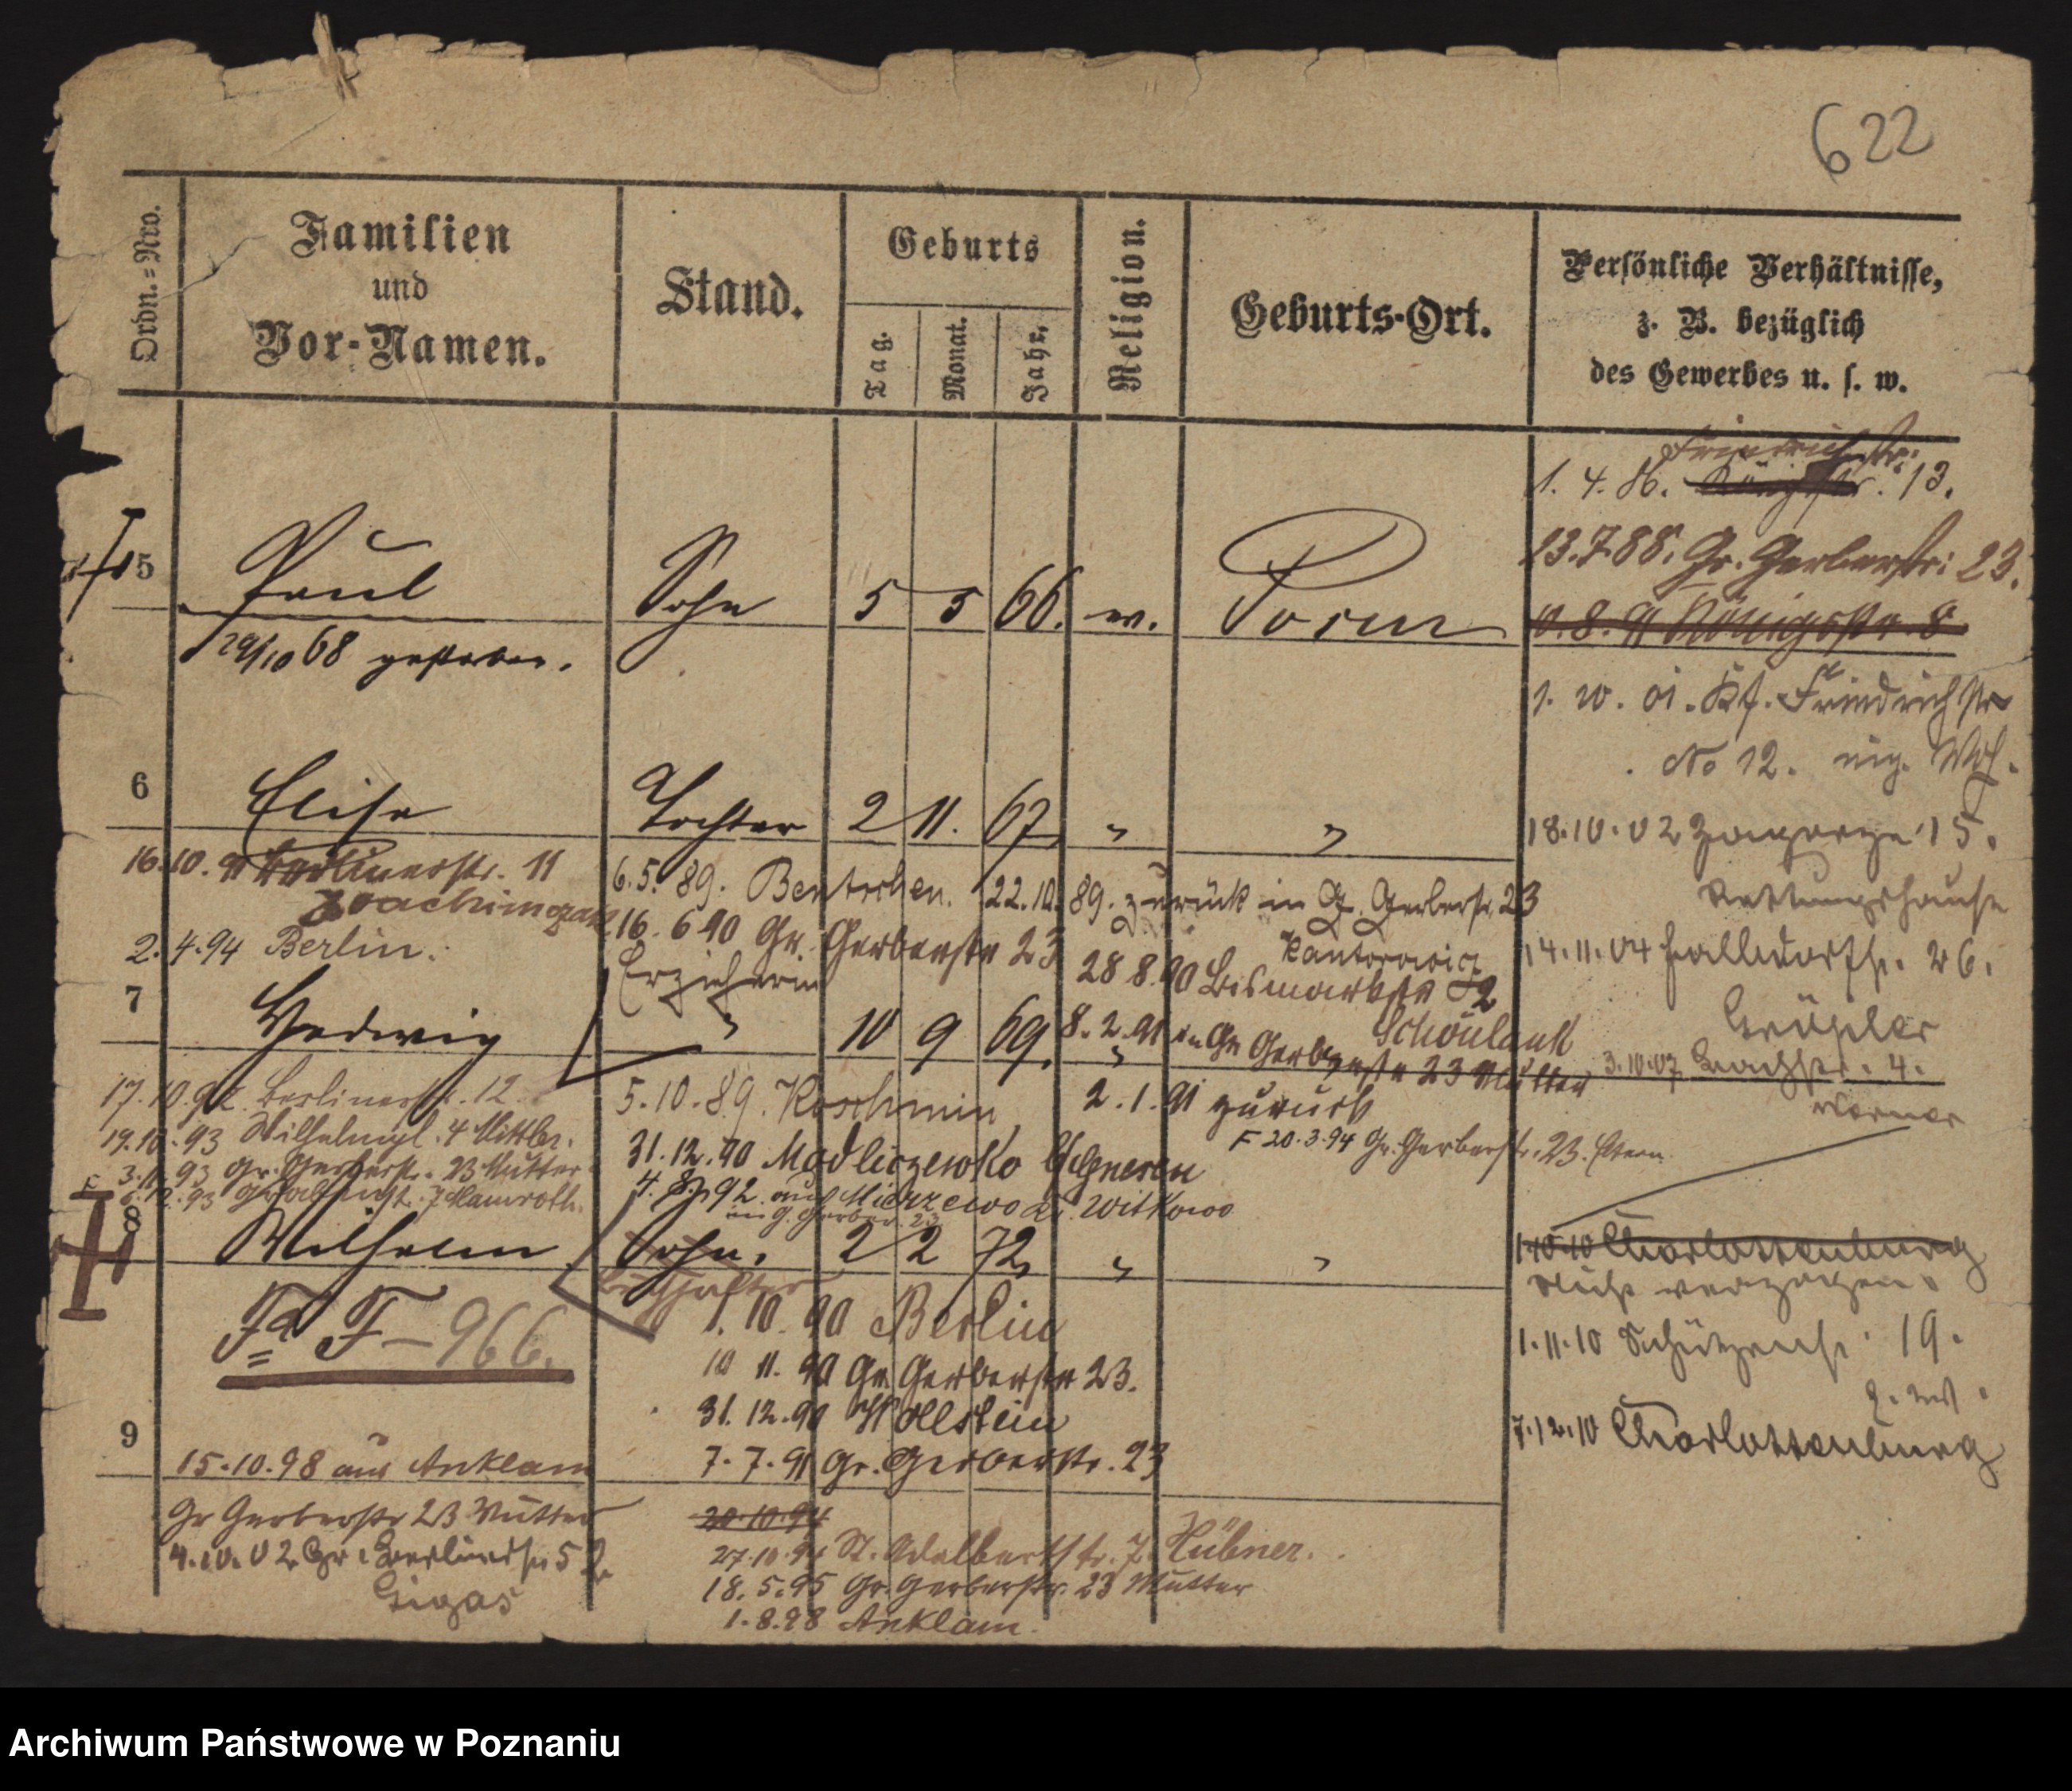 622
Ordn.=Nro.
Familien
und
Vor-Namen.
Stand.
Geburts
Tag.
Monat.
Jahr.
Religion.
Geburts-Ort.
Persönliche Verhältnisse,
z. B. bezüglich
des Gewerbes u. s. w.
Friedrichstr:
1. 4. 86. 13.
5 Paul Sohn 5 5 66. ev. Posen
29/10 68 gestorben.
13.7.88. Gr. Gerberstr: 23.
Königsstr. 8
1. 10. 01. Friedrichstr
No 12.
6 Elise Tochter 2 11. 67 " "
18.10.02 Zagorze 15.
Rettungshause
14.11.04 26.
3.10.07 4.
16.10.91 Berlinerstr. 11
Joachimczak
2.4.94 Berlin.
6.5.89. Bentschen. 22.10.89. zurück in G. Gerberstr 23
16.6 90 Gr. Gerberstr 23
Kantorowicz
28 8.90 Bismarckstr
Erzieherin
7 Hedwig " 10 9 69. "
8.2.91 in Gr Gerberstr 23 Mutter
Schönlank
17.10.92. Berlinerstr. 12.
19.10.93
3.11.93 Gr. Gerberstr. 23 Mutter
5.10.89. Koschmin
2.1.91 zurück
F 20.3.94 Gr. Gerberstr. 23. Eltern.
31.12.90 Modliszewko b/Gnesen
4. 92. auf Mierzewo Kr. Witkowo
in G. Gerber. 23
8 Wilhelm Sohn. 2 2 72, " "
Buchhalter
Fa F - 966.
1. 10. 90 Berlin
10 11. 90 Gr Gerberstr 23.
31. 12. 90 Wollstein
7. 7. 91 Gr. Gerberstr. 23
1.10.10 Charlottenburg
Nicht verzogen.
1.11.10 Schützenstr. 19.
7.12.10 Charlottenburg
9
15.10.98 aus Anklam
Gr Gerberstr 23 Mutter
4.10.02 Gr. Berlinerstr 52
Gigas
20.10.94
27.10.94 St. Adalbertstr. 7. Hübner.
18.5.95 Gr. Gerberstr. 23 Mutter
1.8.98 Anklam.
Archiwum Państwowe w Poznaniu